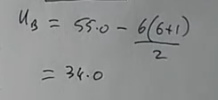 U_B = 55.0 - 6(6+1)/2
= 34.0